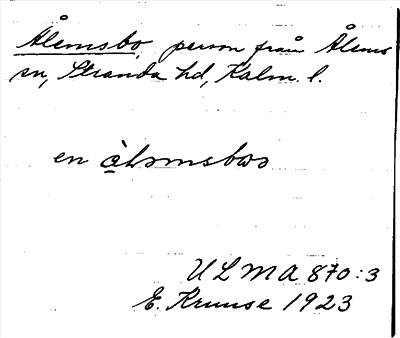 Ålemsbo, person från Ålems
sn, Stranda hd, Kalm. l.
en
ULMA 870:3
E. Kruuse 1923